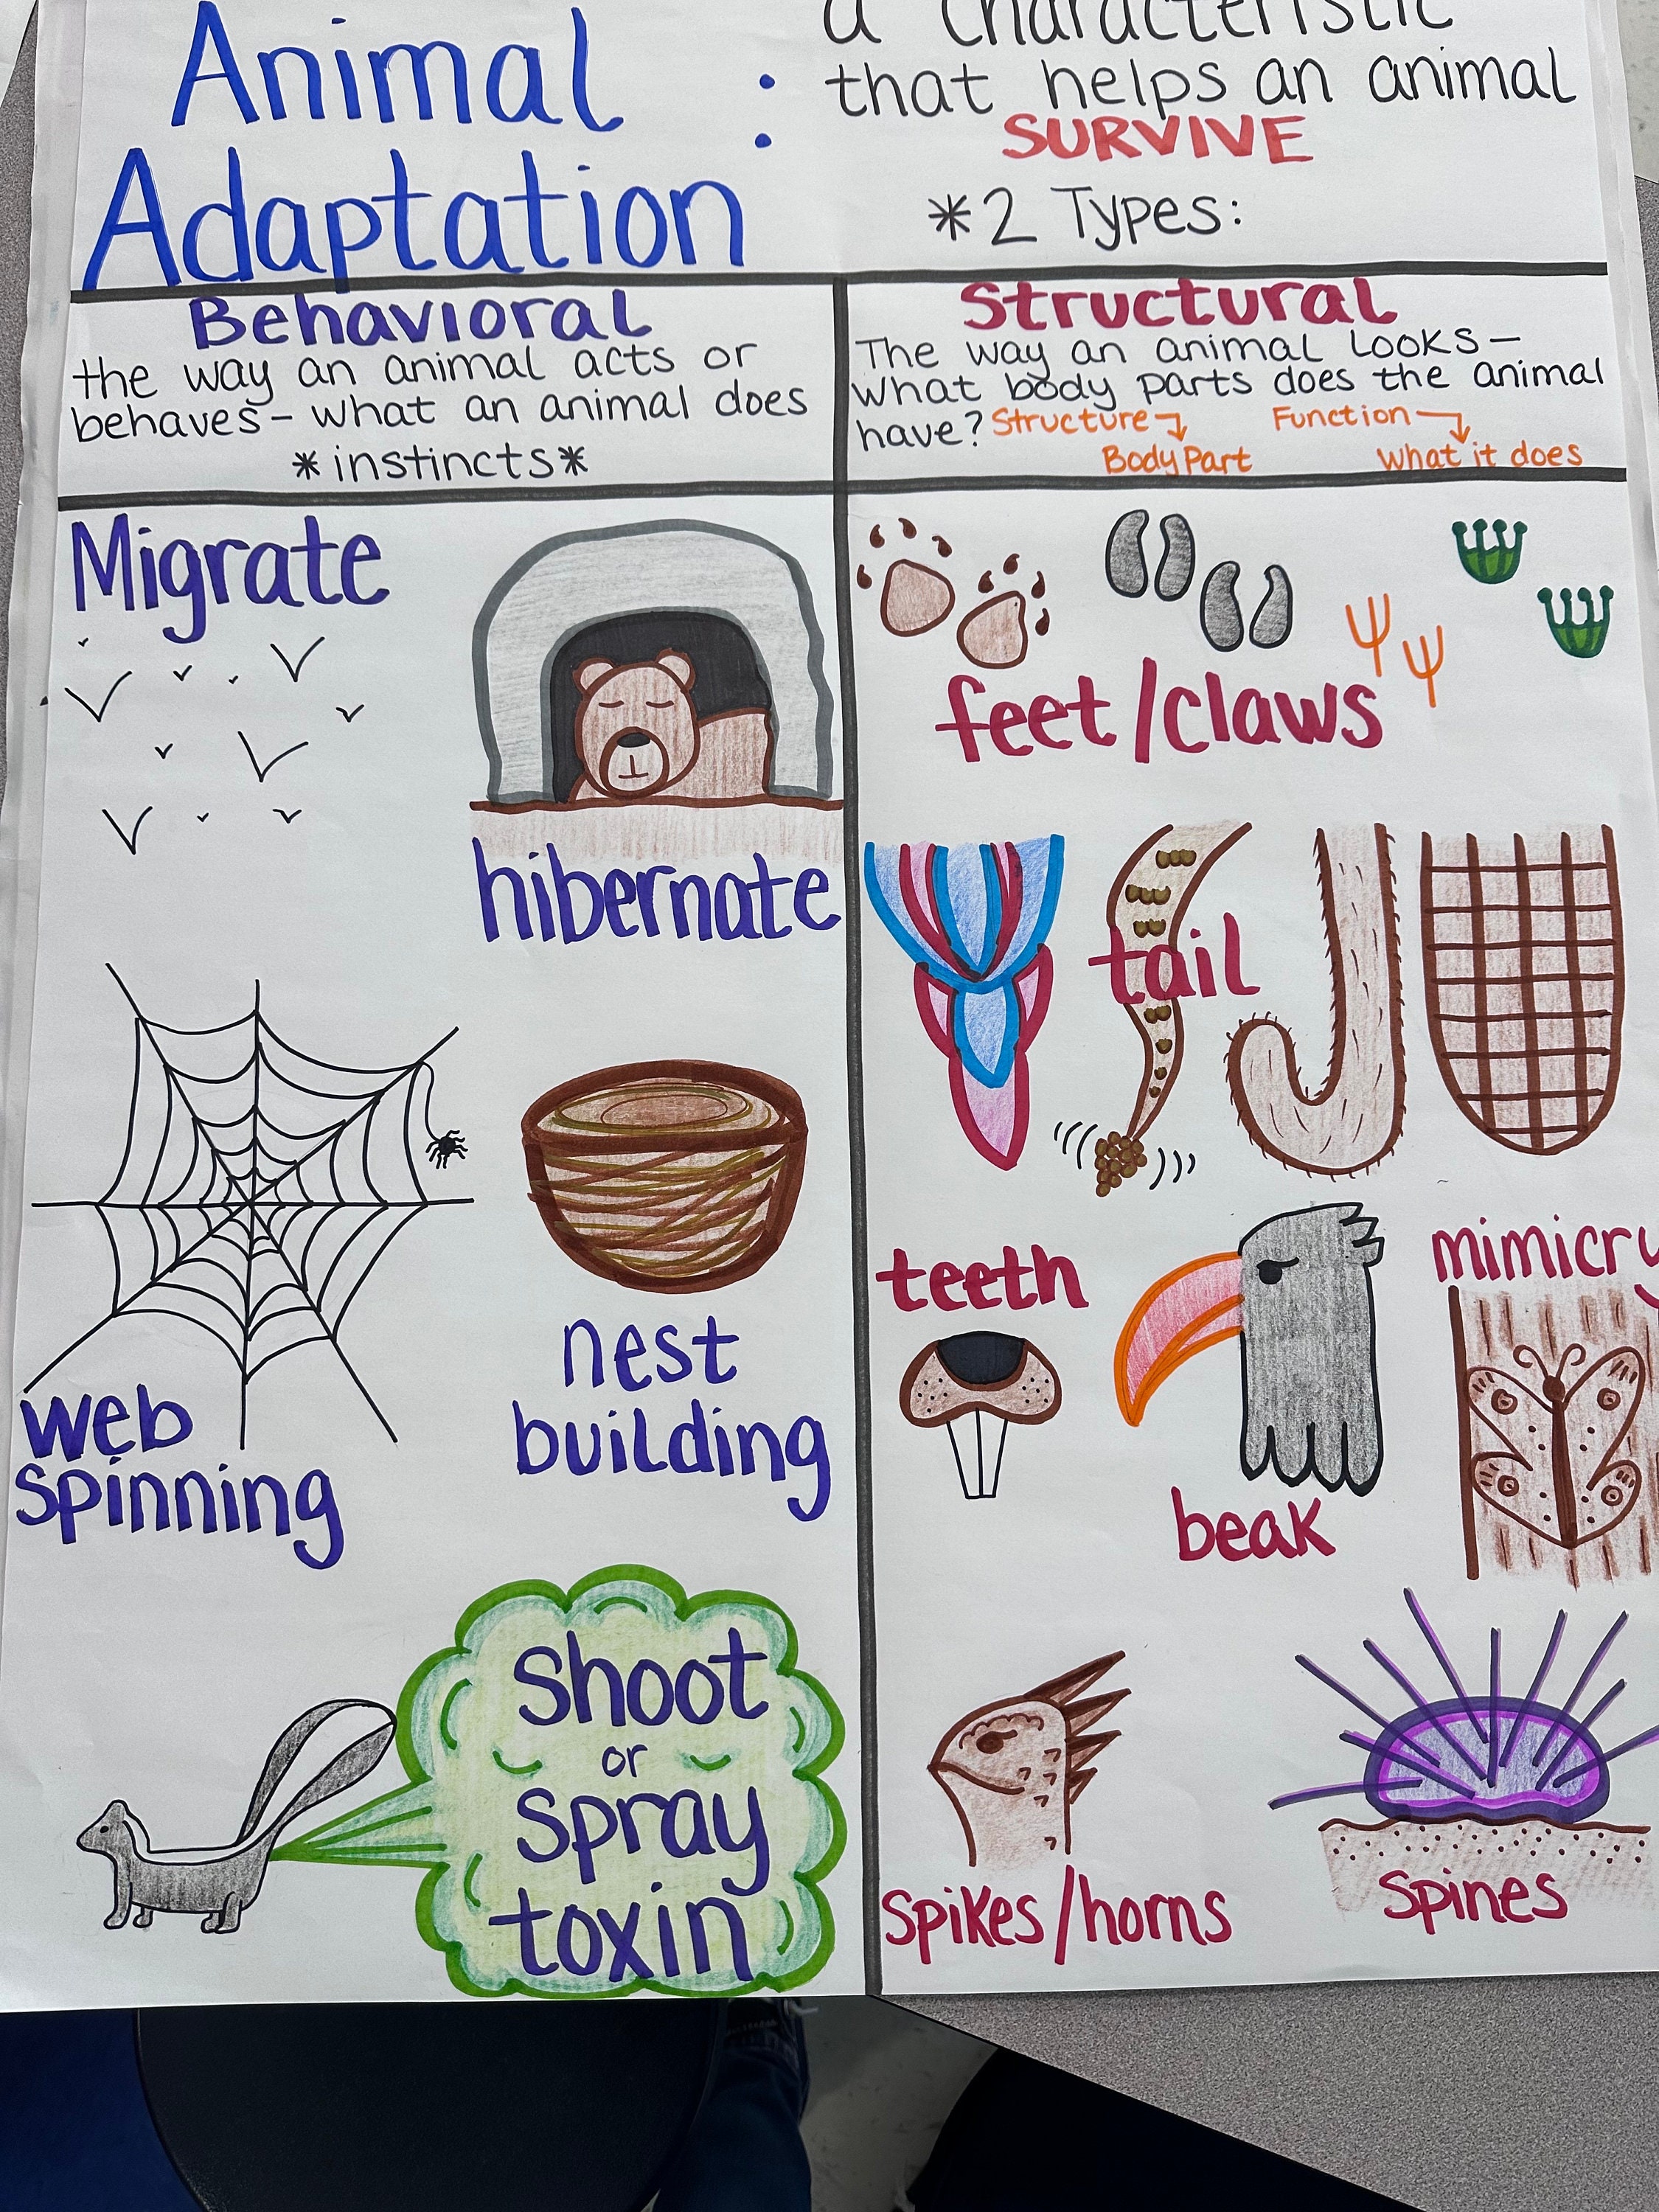 Animal
Adaptation
:
a characteristic
that helps an animal
SURVIVE
*2 Types:
Behavioral
the way an animal acts or
behaves- what an animal does
*instincts*
Structural
The way an animal looks-
what body parts does the animal
have? Structure Function
Body Part what it does
Migrate
hibernate
web
spinning
nest
building
shoot
or
spray
toxin
feet/claws
tail
teeth
beak
mimicry
spikes/horns
spines